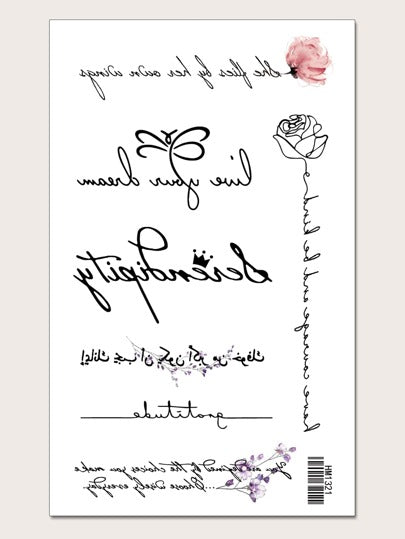 She flies by her own wings
live your dream
Serendipity
إيمانك يجب ان يكون أكبر من خوفك
gratitude
You are defined by the choices you make
....Choose wisely everyday.
have courage and be kind
HM1321